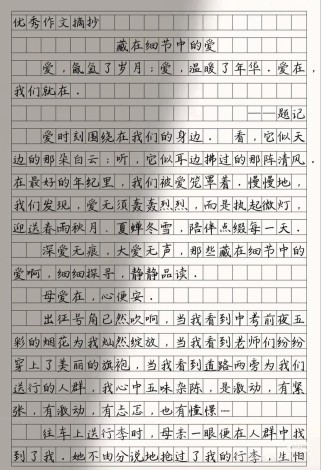 优秀作文摘抄
藏在细节中的爱
爱，氤氲了岁月；爱，温暖了年华。爱在，
我们就在。
——题记
爱时刻围绕在我们的身边。看，它似天
边的那朵白云；听，它似耳边拂过的那阵清风。
在最好的年纪里，我们被爱笼罩着。慢慢地，
我们发现，爱无须轰轰烈烈，而是执起微灯，
迎送春雨秋月，夏蝉冬雪，陪伴点缀每一天。
深爱无痕，大爱无声，那些藏在细节中的
爱啊，细细探寻，静静品读。
母爱在，心便安。
出征号角已然吹响，当我看到中考前夜五
彩的烟花为我灿然绽放，当我看到老师们纷纷
穿上了美丽的旗袍，当我看到道路两旁为我们
送行的人群，我心中五味杂陈，是激动，有紧
张，有激动，有忐忑，也有憧憬…
往车上送行李时，母亲一眼便在人群中找
到了我。她不由分说地抢过了我的行李，生怕